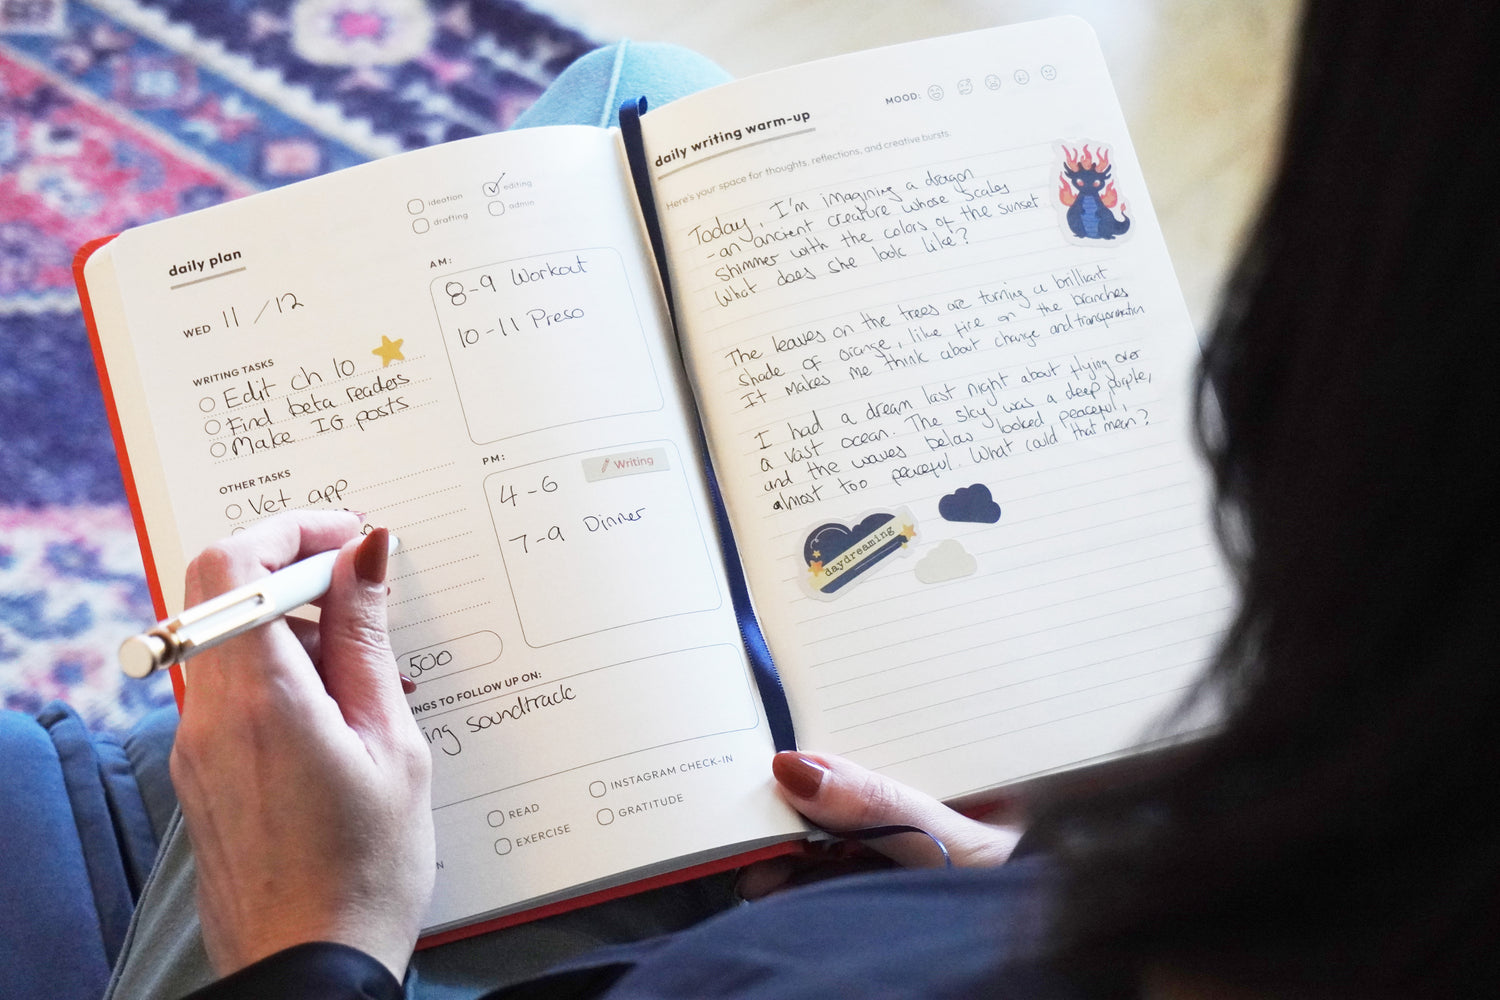 ideation
editing
drafting
admin
daily plan
WED 11/12
WRITING TASKS
Edit ch 10
Find beta readers
Make IG posts
OTHER TASKS
Vet app
AM:
8-9 Workout
10-11 Preso
PM:
Writing
4-6
7-9 Dinner
500
INGS TO FOLLOW UP ON:
ing soundtrack
READ
INSTAGRAM CHECK-IN
EXERCISE
GRATITUDE
N
MOOD:
daily writing warm-up
Here's your space for thoughts, reflections, and creative bursts.
Today, I'm imagining a dragon
-an ancient creature whose scales
shimmer with the colors of the sunset
What does she look like?
The leaves on the trees are turning a brilliant
shade of orange, like fire on the branches
It makes me think about change and transformation
I had a dream last night about flying over
a vast ocean. The sky was a deep purple,
and the waves below looked peaceful,
almost too peaceful. What could that mean?
daydreaming